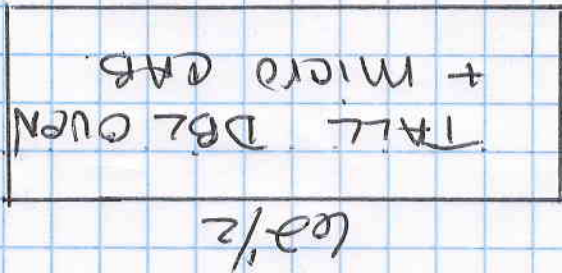 62 1/2
TALL DBL OVEN
+ MICRO CAB